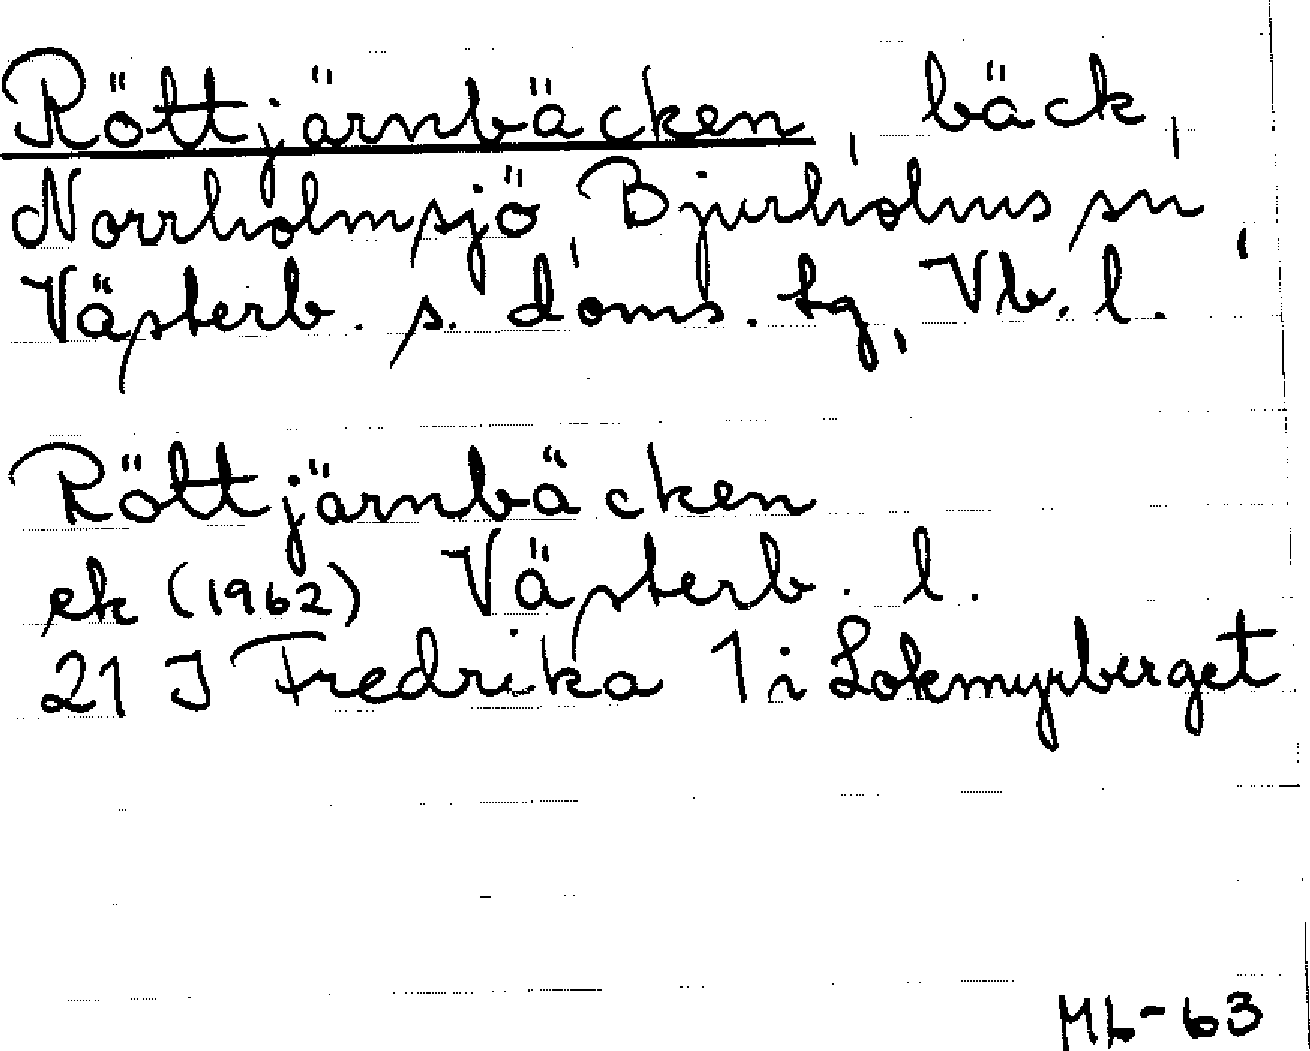 Röttjärnbäcken, bäck,
Norrholmsjö, Bjurholms sn,
Västerb. s. doms. tg, Vb. l.
Röttjärnbäcken
ek (1962) Västerb. l.
21 J Fredrika 1 i Lokmyrberget
ML-63